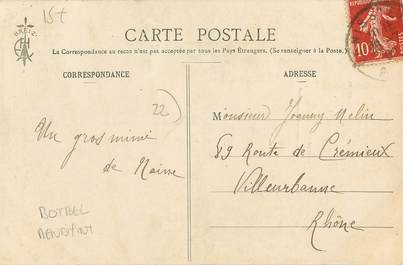 15+
BREIZ
CARTE POSTALE
La Correspondance au recto n'est pas acceptée par tous les Pays Étrangers. (Se renseigner à la Poste.)
CORRESPONDANCE
ADRESSE
10
22
Un gros mimi
de
BOTREL
MENDIANT
Monsieur Joanny Melin
89 Route de Crémieux
Villeurbanne
Rhône